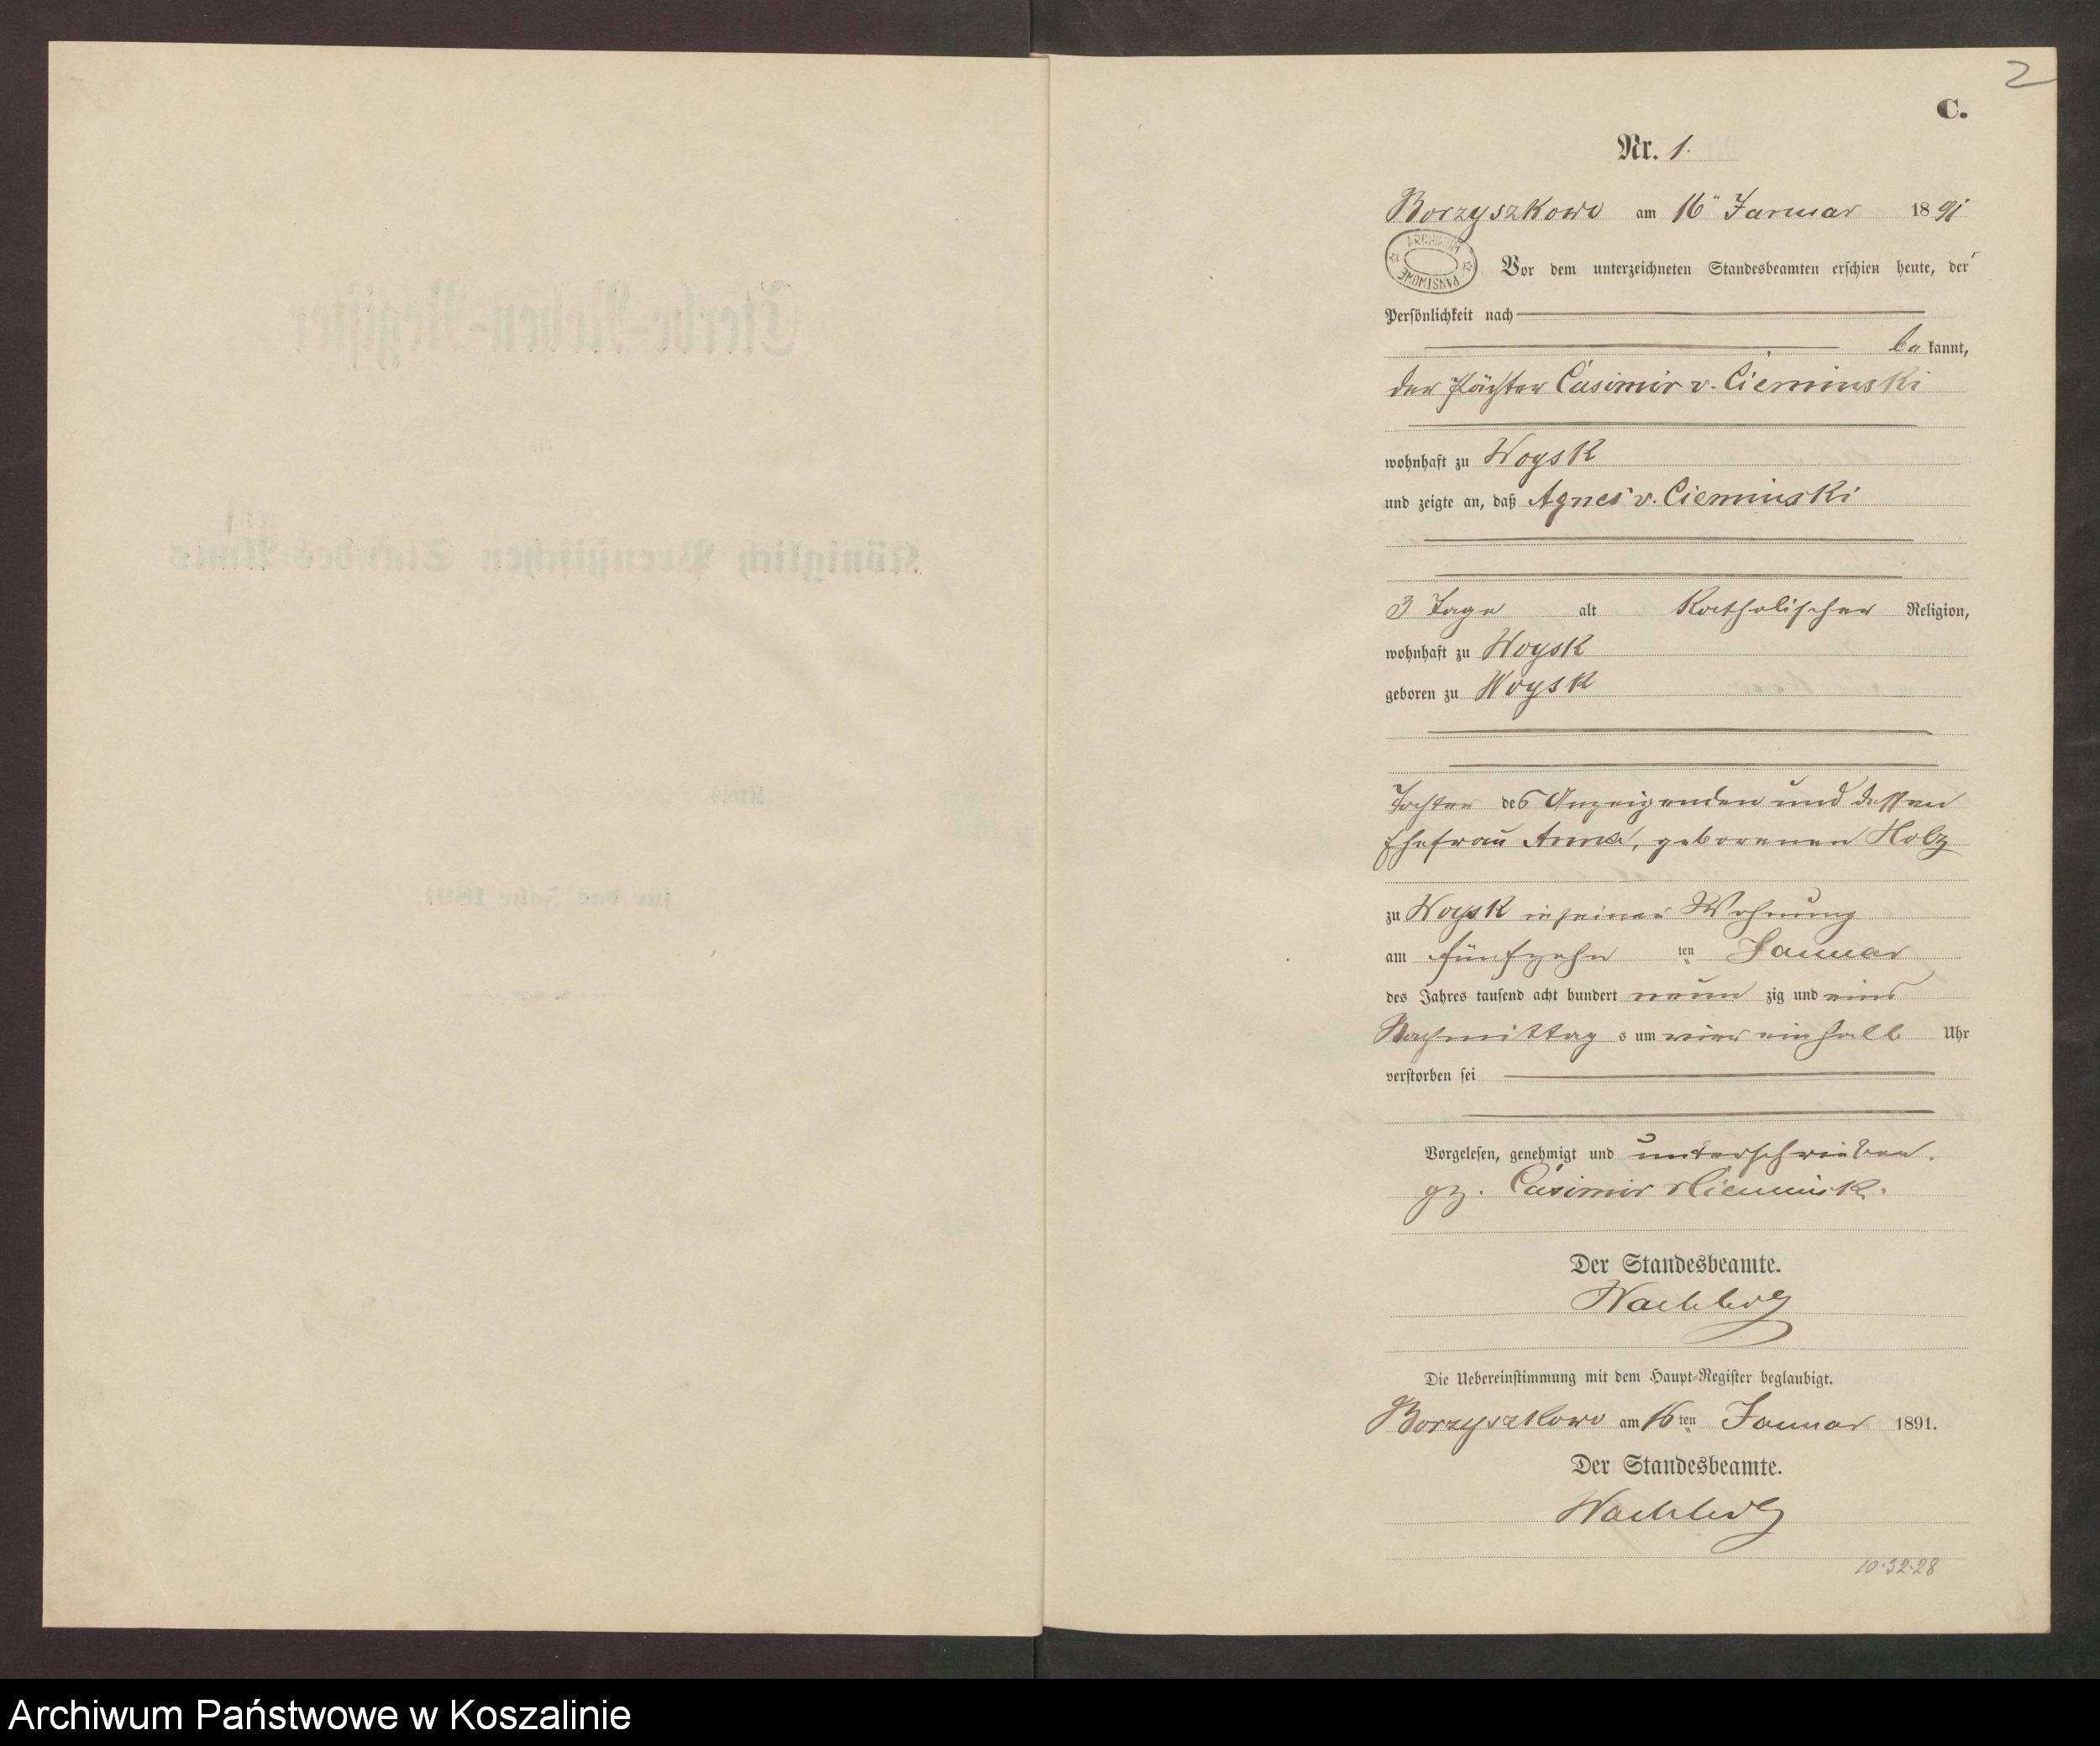 2
C.
Nr. 1.
Borzyszkowo am 16ten Januar 1891
ARCHIWUM PAŃSTWOWE
Vor dem unterzeichneten Standesbeamten erschien heute, der
Persönlichkeit nach
bekannt,
der Pächter Casimir v. Cieminski
wohnhaft zu Woysk
und zeigte an, daß Agnes v. Cieminski
3 Tage alt Katholischer Religion,
wohnhaft zu Woysk
geboren zu Woysk
Tochter des Anzeigenden und dessen
Ehefrau Anna, geborenen Holz
zu Woysk in seiner Wohnung
am fünfzehn ten Januar
des Jahres tausend acht hundert neun zig und eins
Nachmittag s um vier ein halb Uhr
verstorben sei
Vorgelesen, genehmigt und unterschrieben.
gz. Casimir v Cieminski
Der Standesbeamte.
Die Uebereinstimmung mit dem Haupt-Register beglaubigt.
Borzyszkowo am 16ten Januar 1891.
Der Standesbeamte.
10.32.28
Sterbe-Neben-Register
Königlich Preußischen Standes-Amts
Kreis
für das Jahr 1891.
Archiwum Państwowe w Koszalinie